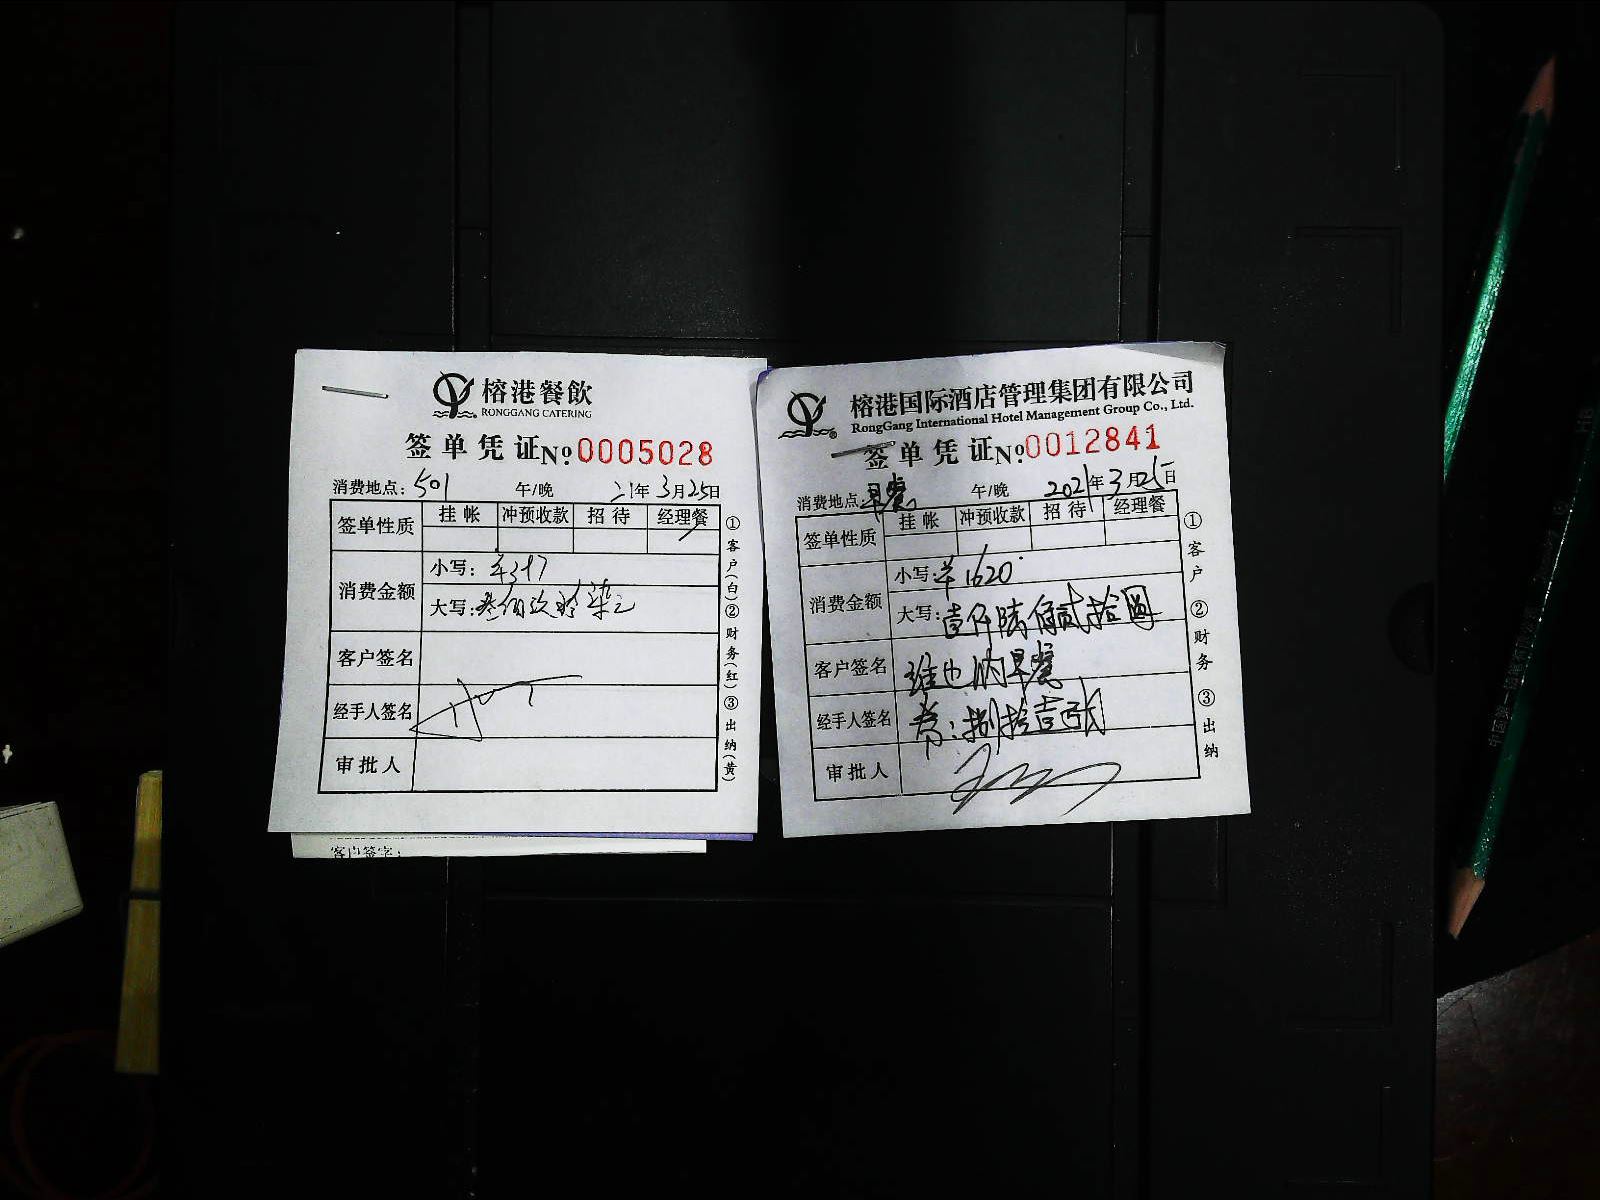 榕港餐飲
RONGGANG CATERING
签单凭证 № 0005028
消费地点: 501 午/晚 21年3月25日
签单性质 挂帐 冲预收款 招待 经理餐
消费金额 小写:
大写: 叁佰 柒
客户签名
经手人签名
审批人
①客户(白)②财务(红)③出纳(黄)
客户签字:
榕港国际酒店管理集团有限公司
RongGang International Hotel Management Group Co., Ltd.
签单凭证 № 0012841
消费地点: 早餐 午/晚 2021年3月25日
签单性质 挂帐 冲预收款 招待 经理餐
消费金额 小写: ¥1620
大写: 壹仟陆佰贰拾圆
客户签名 维也纳早餐
经手人签名 券:捌拾壹张
审批人
①客户 ②财务 ③出纳
中国第一铅笔
HB